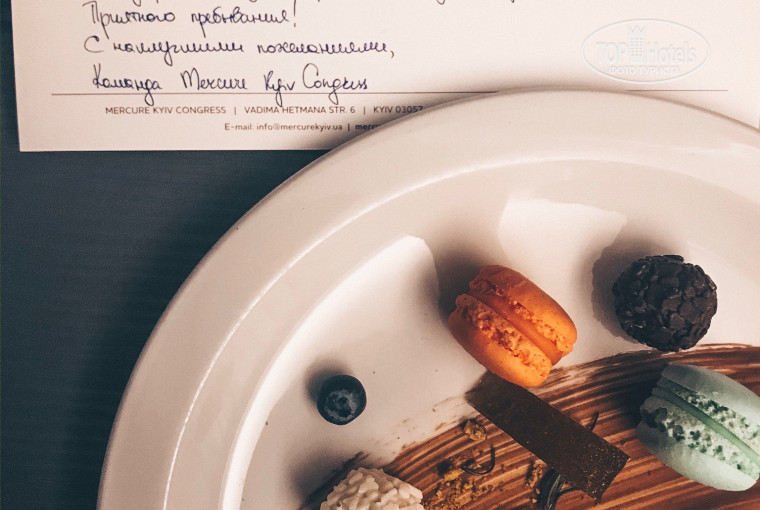 Приятного пребывания!
С наилучшими пожеланиями,
Команда Mercure Kyiv Congress
MERCURE KYIV CONGRESS | VADIMA HETMANA STR. 6 | KYIV 03057
E-mail: info@mercurekyiv.ua |
TOP Hotels
ФОТО ТУРИСТА